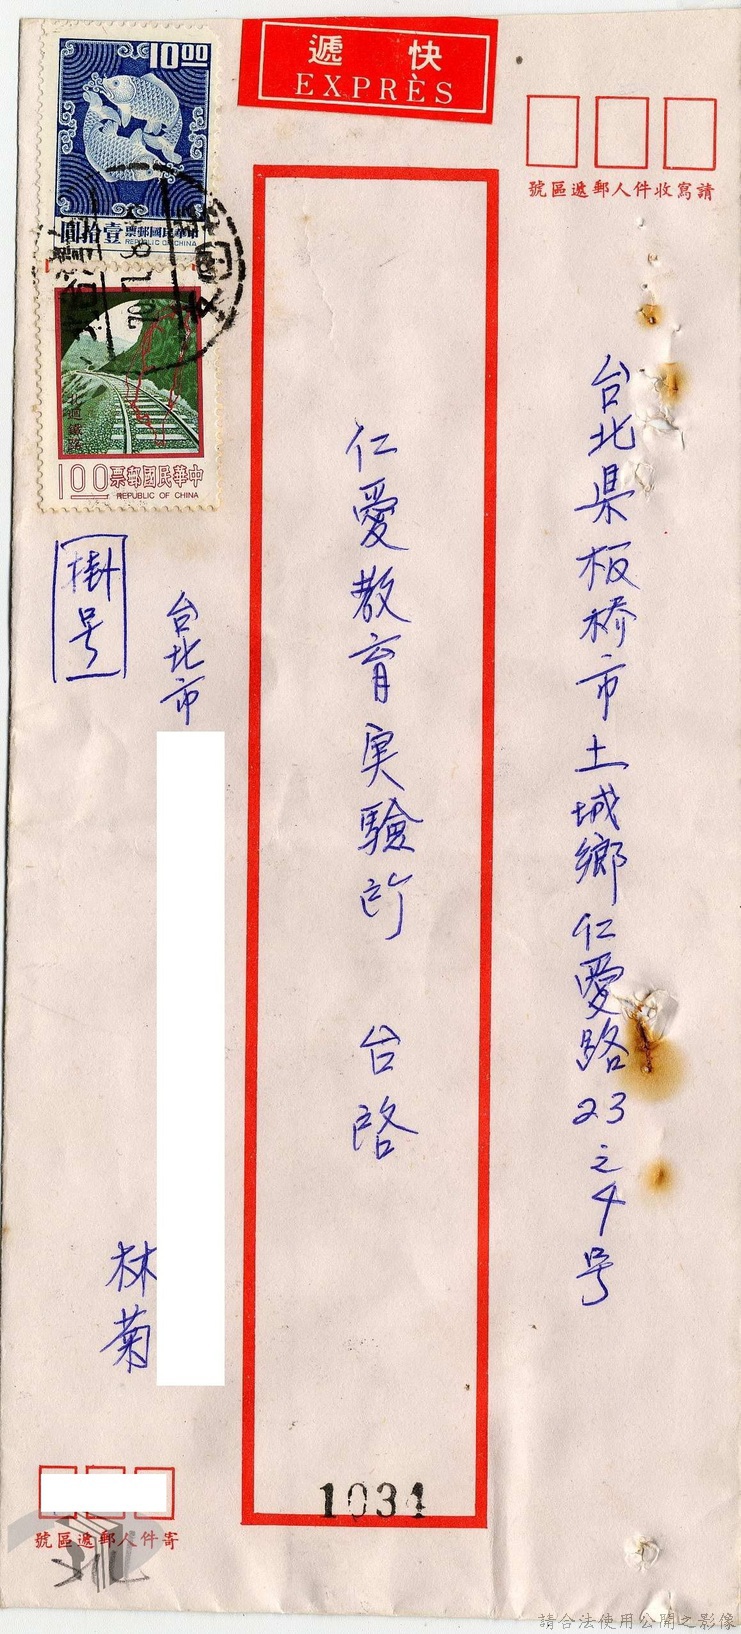 快遞
EXPRÈS
請寫收件人郵遞區號
10.00
中華民國郵票
REPUBLIC OF CHINA
壹拾圓
北迴鐵路
中華民國郵票
REPUBLIC OF CHINA
1.00
台北県板桥市土城鄉仁愛路23之4号
仁愛教育実驗所 台啓
掛号
台北市
林菊
1034
寄件人郵遞區號
請合法使用公開之影像